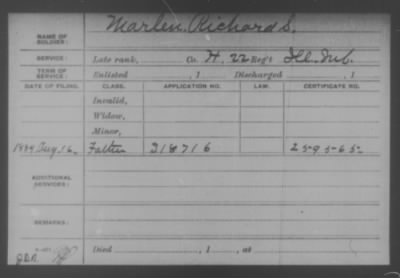 NAME OF SOLDIER: Marlen, Richard S.
SERVICE: Late rank, Co. H, 22 Reg't Ill. Inf.
TERM OF SERVICE: Enlisted , 1 Discharged , 1
DATE OF FILING. CLASS. APPLICATION NO. LAW. CERTIFICATE NO.
Invalid,
Widow,
Minor,
1884 Aug. 16. Father 318716 259565
ADDITIONAL SERVICES:
REMARKS:
Died , 1 , at